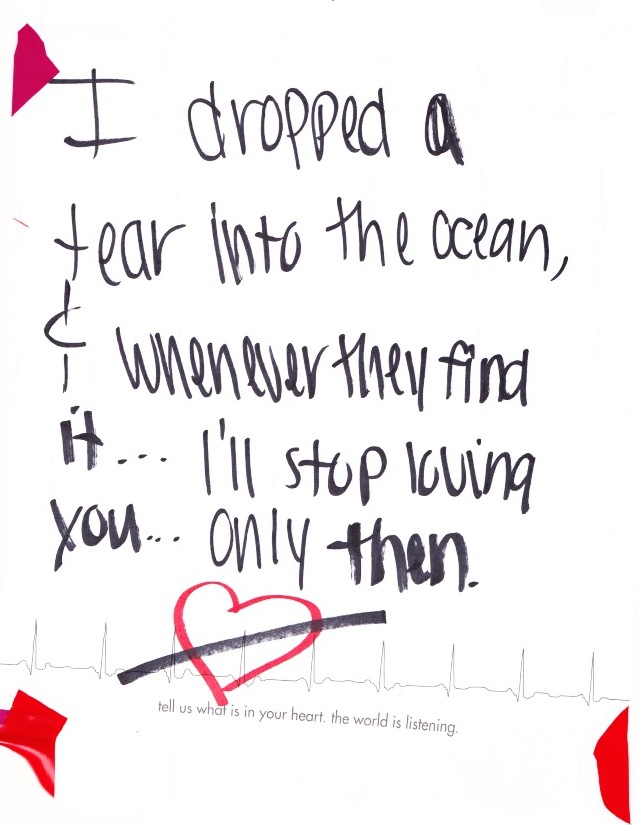 I dropped a
tear into the ocean,
& whenever they find
it... I'll stop loving
you... only then.
tell us what is in your heart. the world is listening.